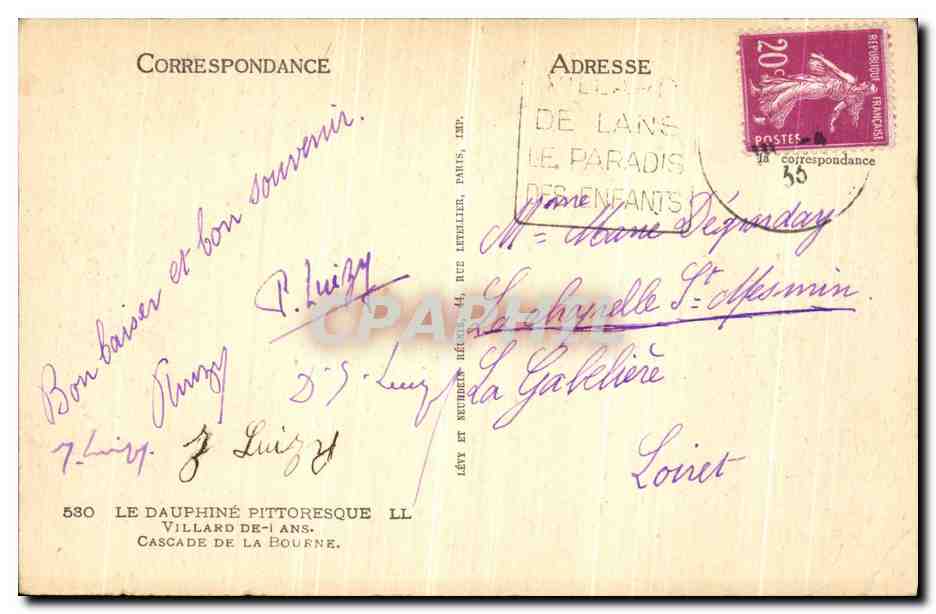 CORRESPONDANCE
ADRESSE
RÉPUBLIQUE FRANÇAISE
20c
POSTES
VILLARD
DE LANS
LE PARADIS
DES ENFANTS
-4
35
correspondance
Bon baiser et bon souvenir.
P. Luizy
Luizy
D. S. Luizy
J. Luizy.
J Luizy
LÉVY ET NEURDEIN RÉUNIS, 44, RUE LETELLIER, PARIS, IMP.
Mme
La chapelle St Mesmin.
La Gabelière
Loiret
CPARAMA
530 LE DAUPHINÉ PITTORESQUE LL
VILLARD-DE-LANS.
CASCADE DE LA BOURNE.